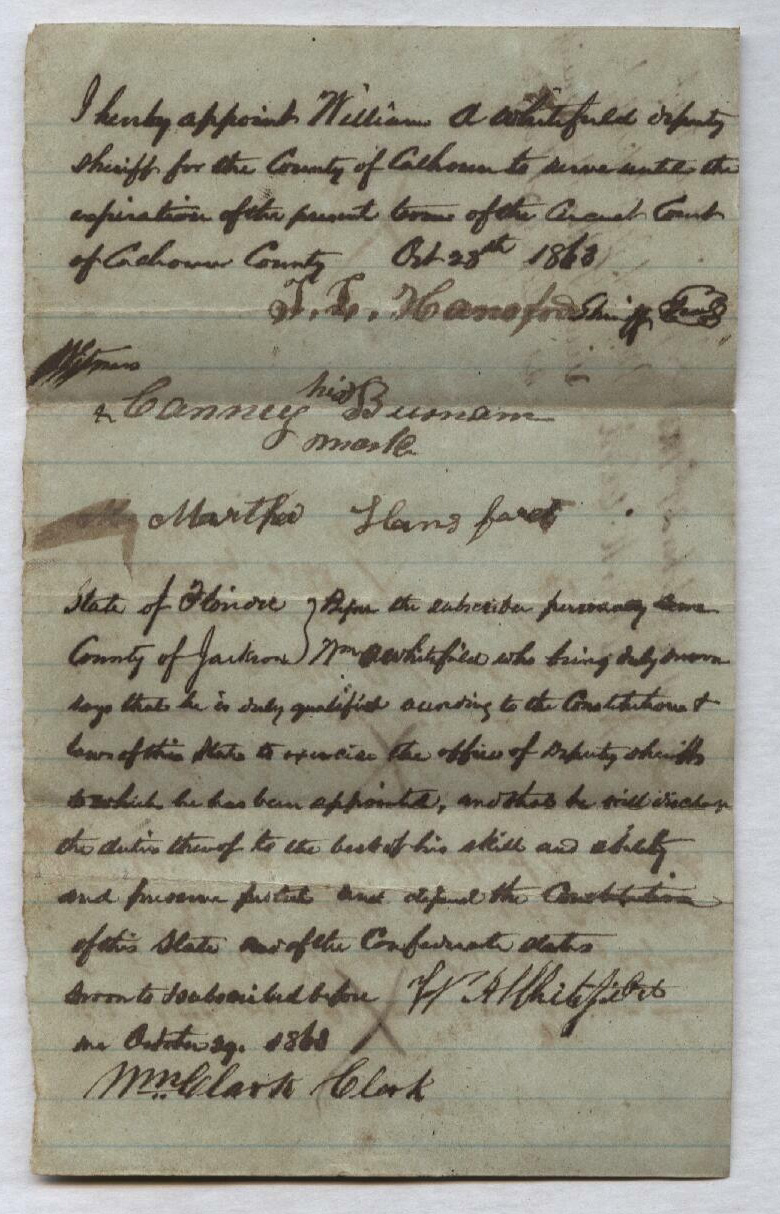 I hereby appoint William A Whitefield deputy
sheriff for the County of Calhoun to serve untill the
expiration of the present term of the Circuit Court
of Calhoun County Oct 28th 1863
T. L. Hansford Sheriff Seal
Witness
Canney his Burnam
mark
Martha Hansford
State of Floride } Before the subscriber personaly came
County of Jackson } Wm A Whitefield who being duly sworn
says that he is duly qualified acording to the Constitution &
laws of this State to exercise the office of Deputy sheriff
to which he has been appointed, and that he will discharge
the duties thereof to the best of his skill and ability
and preserve protect and defend the Constitution
of this State and of the Confederate states
sworn to & subscribed before W A Whitefield
me October 29. 1863
Wm Clark Clerk